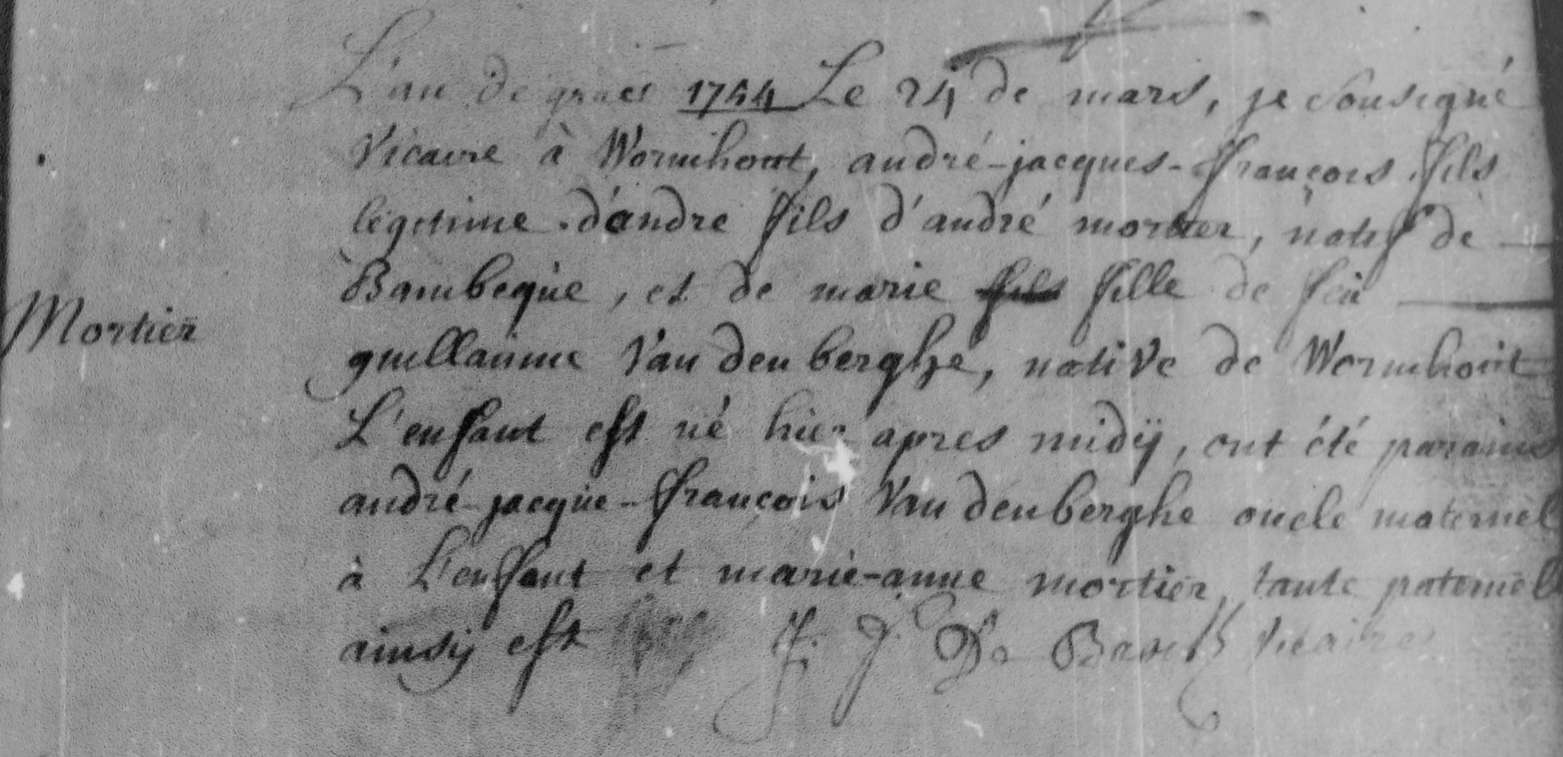 L'an de grace 1754 Le 24 de mars, je Sousigné
Vicaire à Wormhout, andré-jacques-françois fils
légitime d'andre fils d'andré mortier, natif de
Mortier
Bambeque, et de marie fils fille de feu
guillaume Van den berghe, native de Wormhout
L'enfant est né hier apres midÿ, ont été parains
andré-jacque-françois Van den berghe oncle maternel
à L'enfant et marie-anne mortier tante paternel
ainsÿ est J. J. De Vicaire